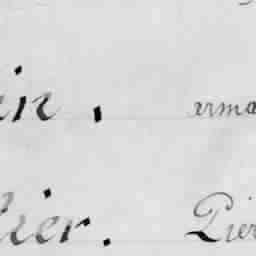 in. arma
lier. Pier